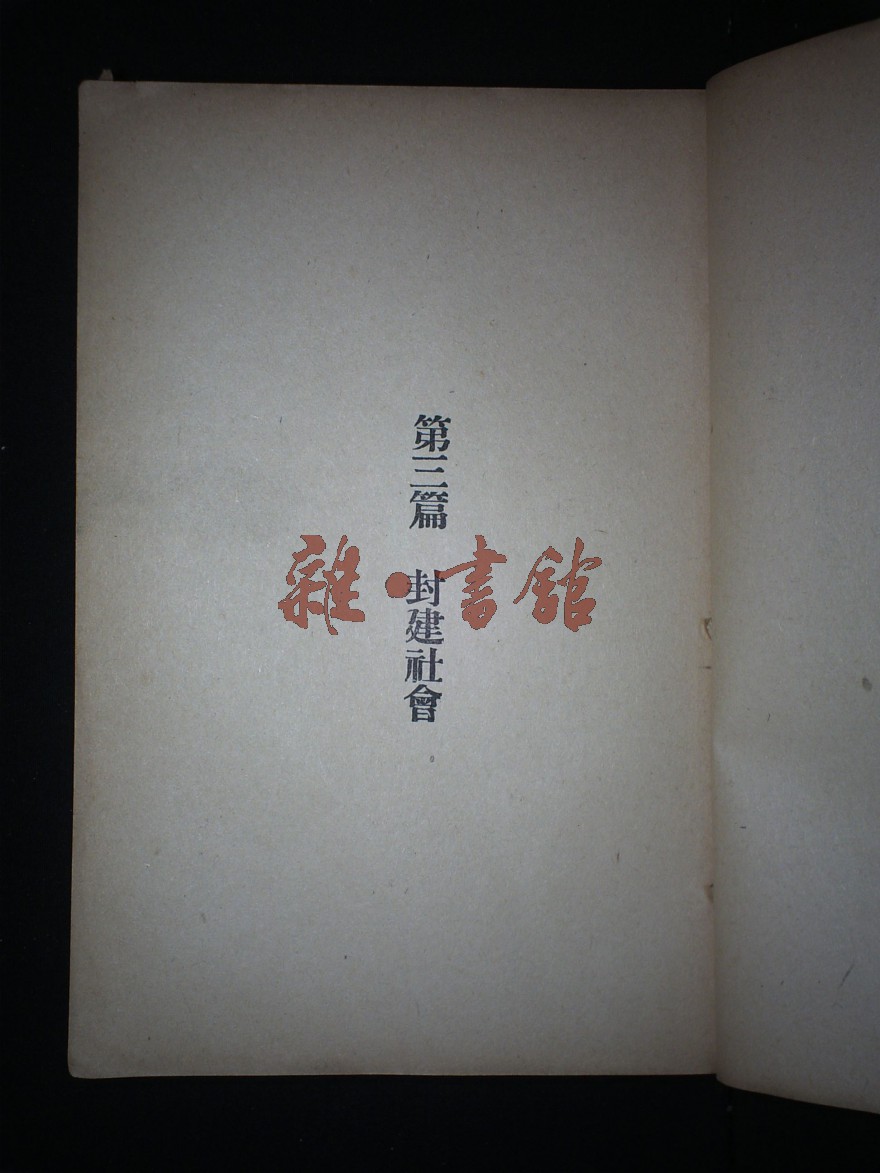 第三篇　封建社會
雜·書館